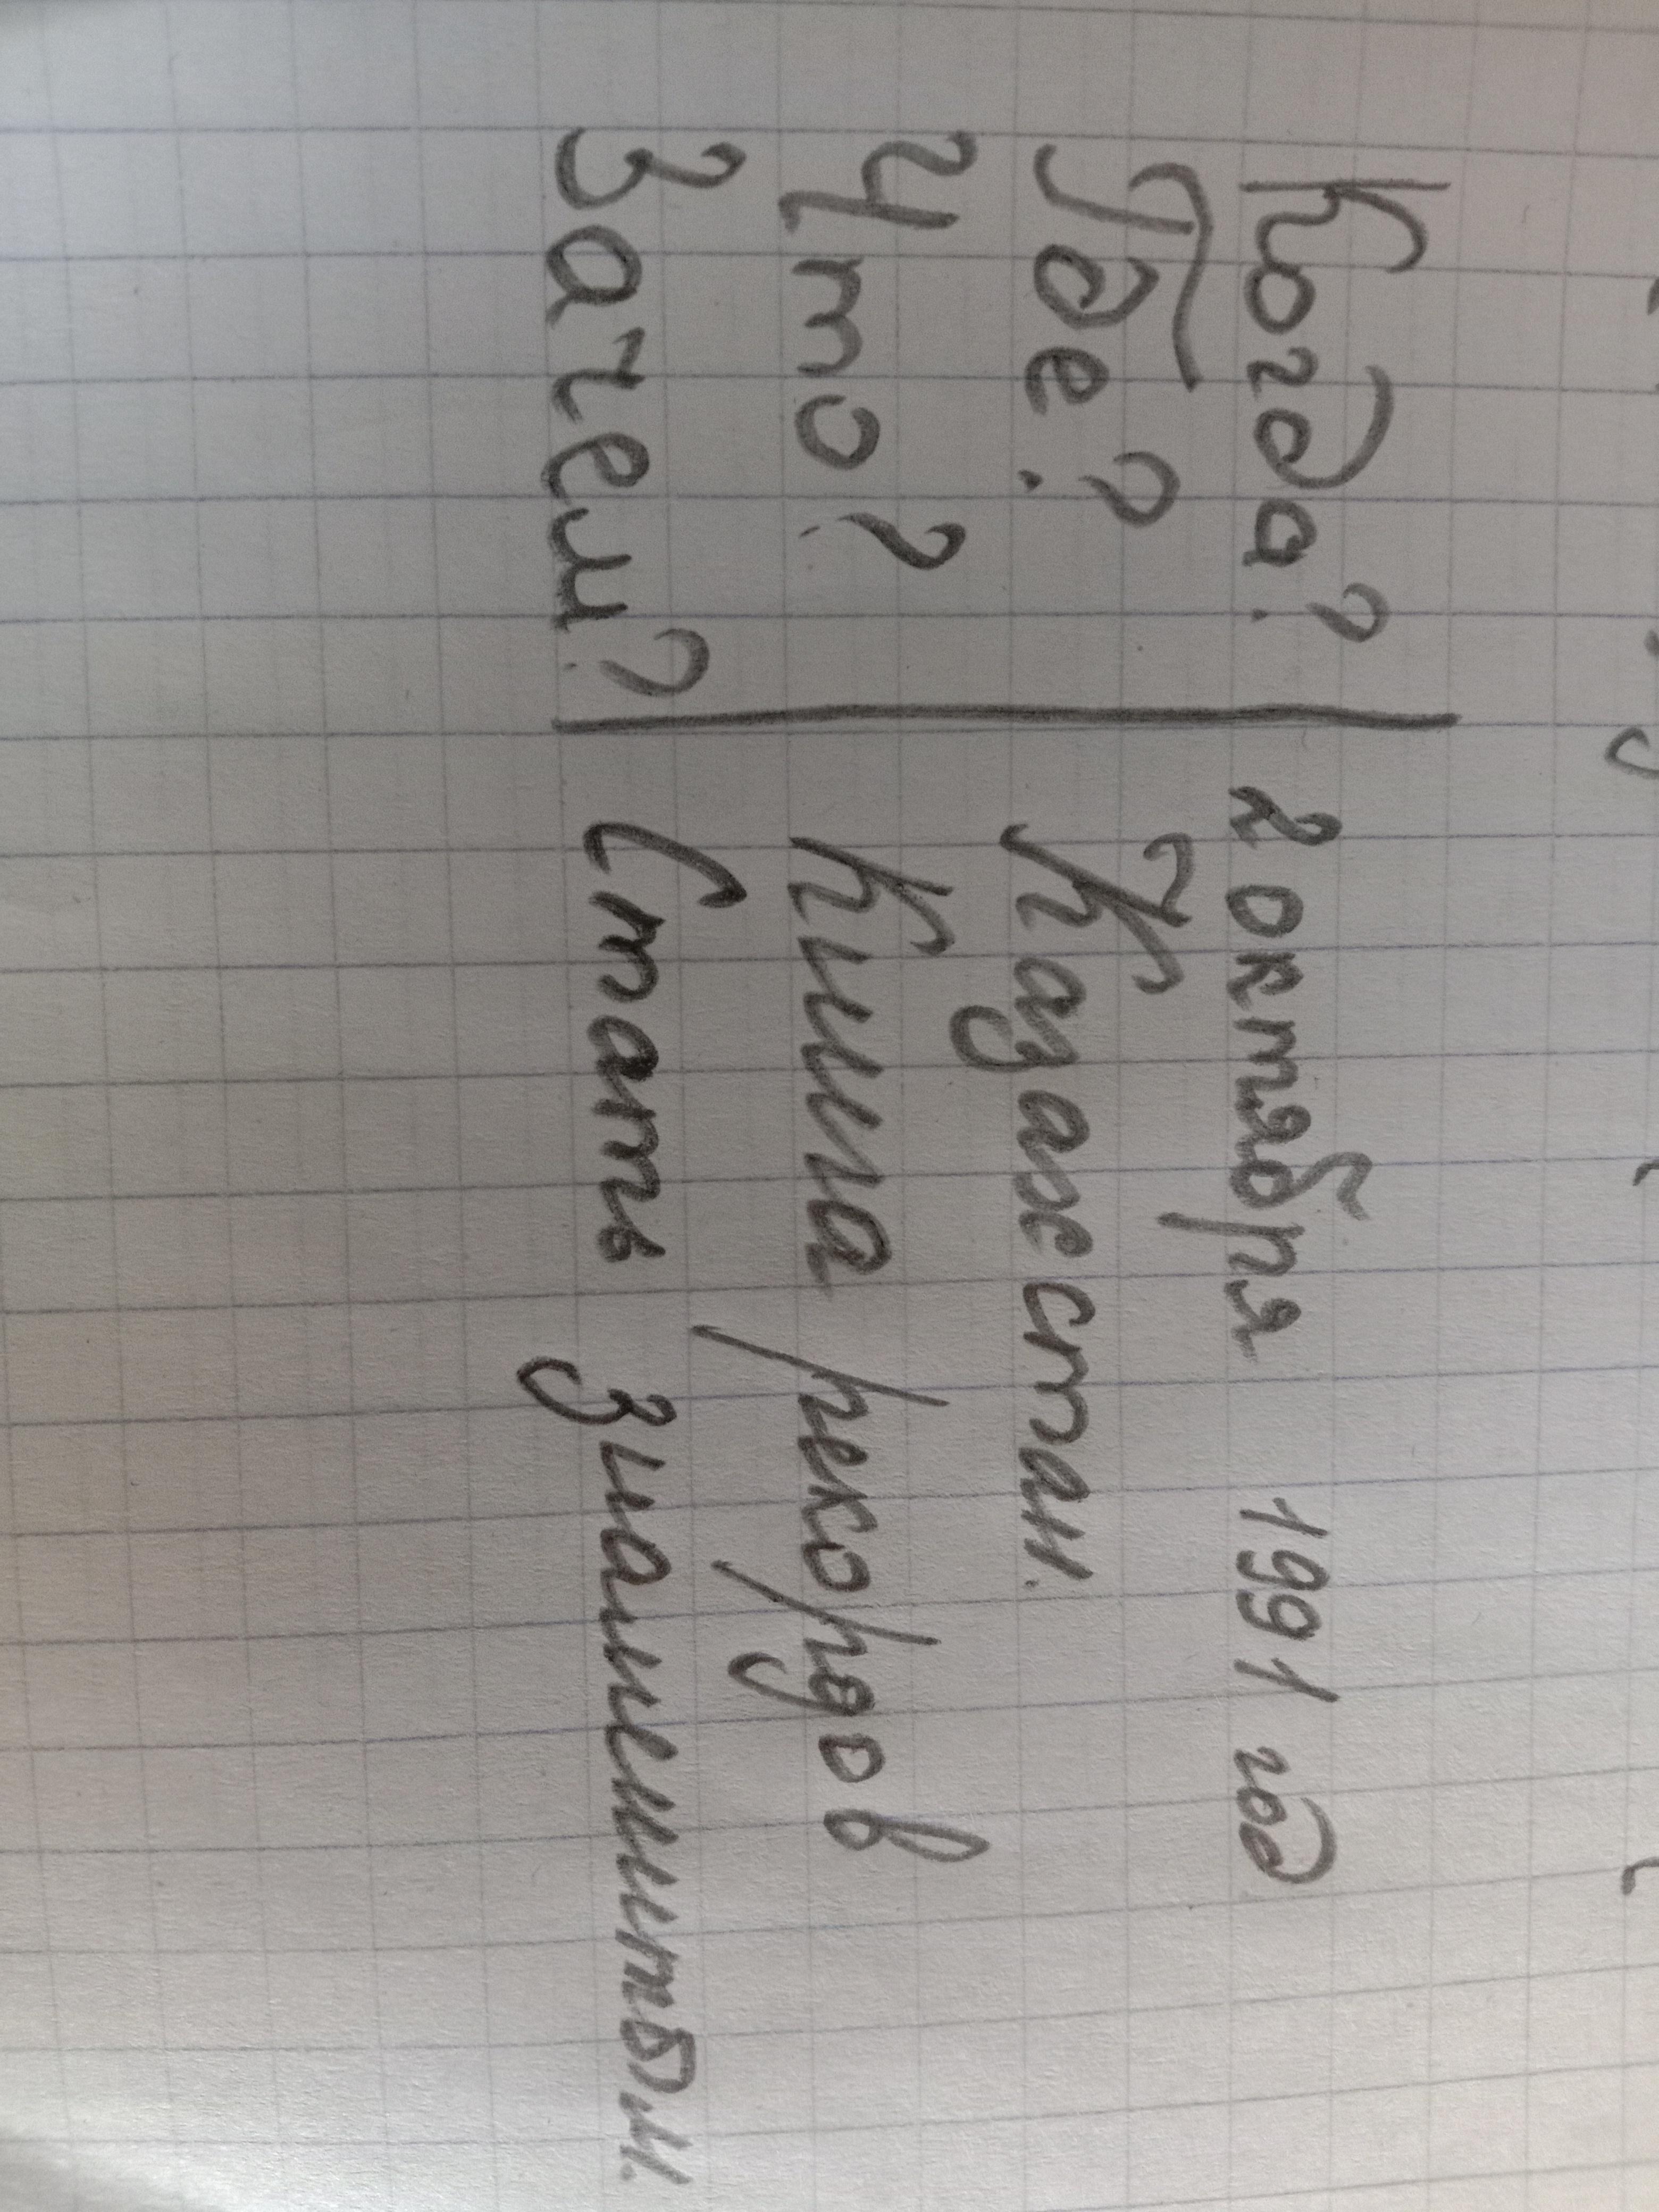 Когда? 2 октября 1991 год
Где? Казахстан.
Что? Книга рекордов
Зачем? Стать знаменитым.